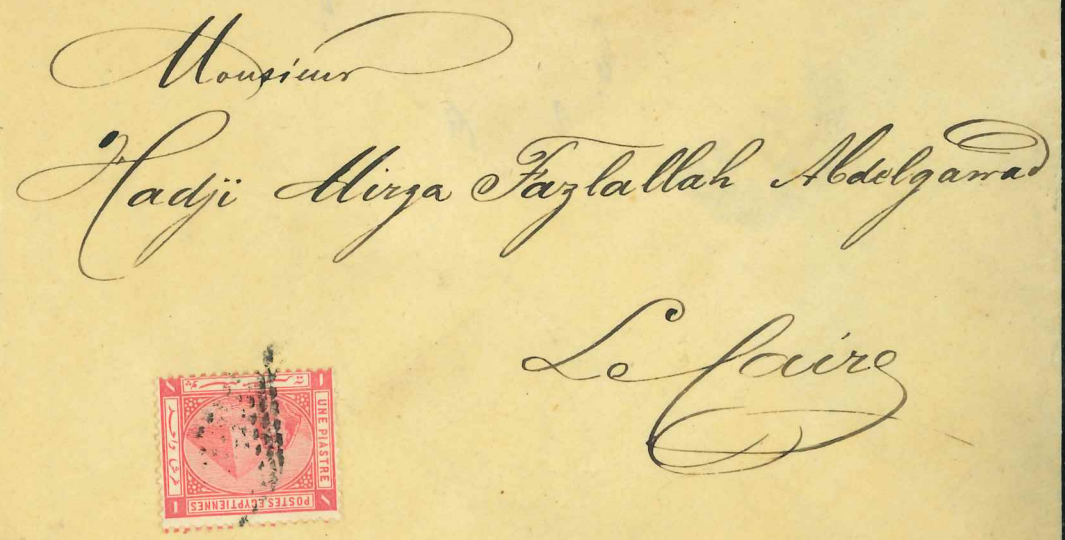 Monsieur
Hadji Mirza Fazlallah Abdelgawad
Le Caire
UNE PIASTRE
POSTES EGYPTIENNES
1
1